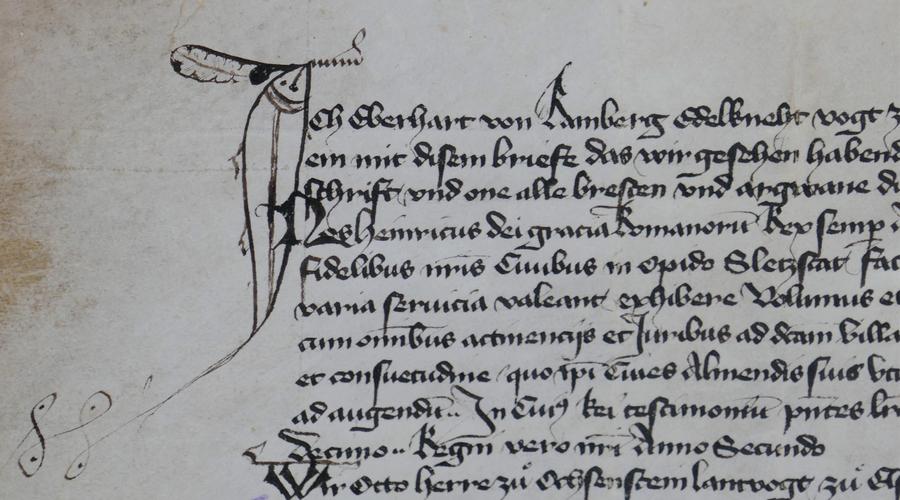 Ich Eberhart von Ramberg Edelkneht vogt z
ein mit disem briefe das wir gesehen habend
schrift vnd one alle bresten vnd argwane
Nos heinricus dei gracia Romanorū Rex semp
fidelibus nr̄is Ciuibus in opido Sletzstat
varia seruicia valeant exhibere Volumus et
cum om̄ibus attinencijs et Juribus ad dc̄am villa
et consuetudine quo ip̄i Ciues Almendis suis
ad augendū In Cuius Rei testimoniū pn̄tes
decimo Regni vero nr̄i Anno Secundo
Wir Otto herre zů Ochsenstein lantvogt zů Els